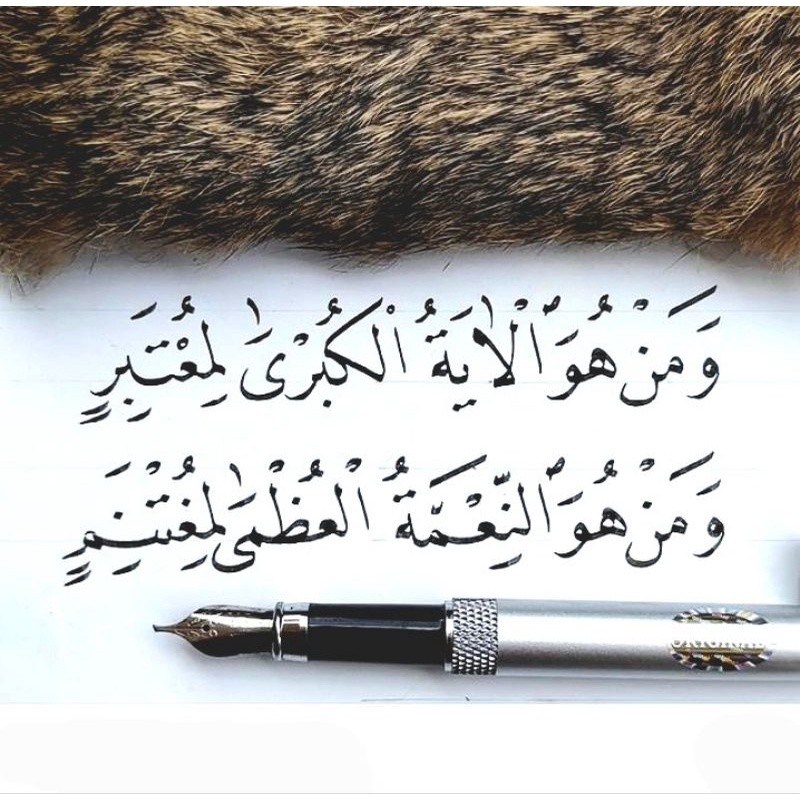 وَمَنْ هُوَ ٱلْاٰيَةُ الْكُبْرىٰ لِمُعْتَبِرٍ
وَمَنْ هُوَ ٱلنِّعْمَةُ الْعُظْمىٰ لِمُغْتَنِمٍ
ORIGINAL